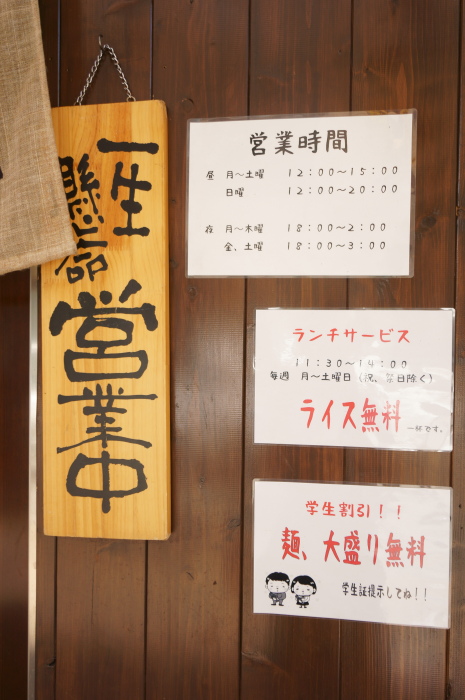 一生
懸命
営業中
営業時間
昼 月〜土曜 12:00〜15:00
日曜 12:00〜20:00
夜 月〜木曜 18:00〜2:00
金、土曜 18:00〜3:00
ランチサービス
11:30〜14:00
毎週 月〜土曜日(祝、祭日除く)
ライス無料 一杯です。
学生割引!!
麺、大盛り無料
学生証提示してね!!